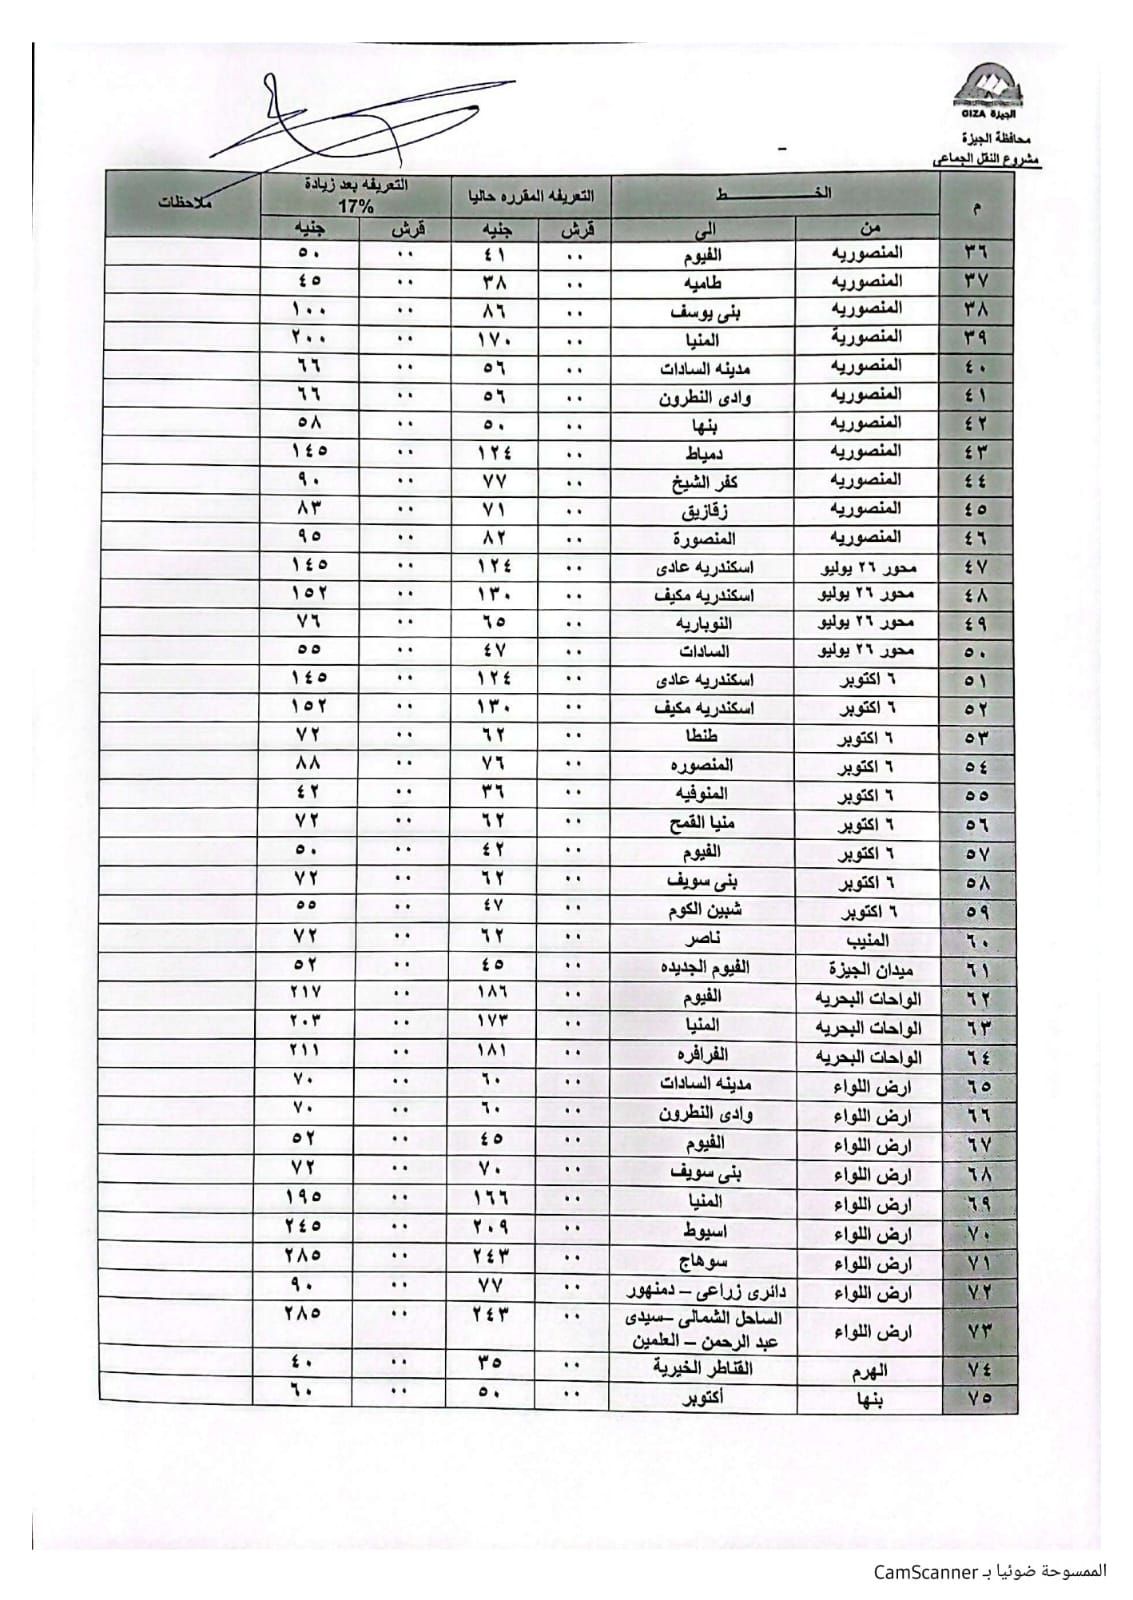 الجيزة GIZA
محافظة الجيزة
مشروع النقل الجماعى
م الخـــــــــــط التعريفه المقرره حاليا التعريفه بعد زيادة 17% ملاحظات
من الى قرش جنيه قرش جنيه
٣٦ المنصوريه الفيوم ٠٠ ٤١ ٠٠ ٥٠
٣٧ المنصوريه طاميه ٠٠ ٣٨ ٠٠ ٤٥
٣٨ المنصوريه بنى يوسف ٠٠ ٨٦ ٠٠ ١٠٠
٣٩ المنصورية المنيا ٠٠ ١٧٠ ٠٠ ٢٠٠
٤٠ المنصوريه مدينه السادات ٠٠ ٥٦ ٠٠ ٦٦
٤١ المنصوريه وادى النطرون ٠٠ ٥٦ ٠٠ ٦٦
٤٢ المنصوريه بنها ٠٠ ٥٠ ٠٠ ٥٨
٤٣ المنصوريه دمياط ٠٠ ١٢٤ ٠٠ ١٤٥
٤٤ المنصوريه كفر الشيخ ٠٠ ٧٧ ٠٠ ٩٠
٤٥ المنصوريه زقازيق ٠٠ ٧١ ٠٠ ٨٣
٤٦ المنصوريه المنصورة ٠٠ ٨٢ ٠٠ ٩٥
٤٧ محور ٢٦ يوليو اسكندريه عادى ٠٠ ١٢٤ ٠٠ ١٤٥
٤٨ محور ٢٦ يوليو اسكندريه مكيف ٠٠ ١٣٠ ٠٠ ١٥٢
٤٩ محور ٢٦ يوليو النوباريه ٠٠ ٦٥ ٠٠ ٧٦
٥٠ محور ٢٦ يوليو السادات ٠٠ ٤٧ ٠٠ ٥٥
٥١ ٦ اكتوبر اسكندريه عادى ٠٠ ١٢٤ ٠٠ ١٤٥
٥٢ ٦ اكتوبر اسكندريه مكيف ٠٠ ١٣٠ ٠٠ ١٥٢
٥٣ ٦ اكتوبر طنطا ٠٠ ٦٢ ٠٠ ٧٢
٥٤ ٦ اكتوبر المنصوره ٠٠ ٧٦ ٠٠ ٨٨
٥٥ ٦ اكتوبر المنوفيه ٠٠ ٣٦ ٠٠ ٤٢
٥٦ ٦ اكتوبر منيا القمح ٠٠ ٦٢ ٠٠ ٧٢
٥٧ ٦ اكتوبر الفيوم ٠٠ ٤٢ ٠٠ ٥٠
٥٨ ٦ اكتوبر بنى سويف ٠٠ ٦٢ ٠٠ ٧٢
٥٩ ٦ اكتوبر شبين الكوم ٠٠ ٤٧ ٠٠ ٥٥
٦٠ المنيب ناصر ٠٠ ٦٢ ٠٠ ٧٢
٦١ ميدان الجيزة الفيوم الجديده ٠٠ ٤٥ ٠٠ ٥٢
٦٢ الواحات البحريه الفيوم ٠٠ ١٨٦ ٠٠ ٢١٧
٦٣ الواحات البحريه المنيا ٠٠ ١٧٣ ٠٠ ٢٠٣
٦٤ الواحات البحريه الفرافره ٠٠ ١٨١ ٠٠ ٢١١
٦٥ ارض اللواء مدينه السادات ٠٠ ٦٠ ٠٠ ٧٠
٦٦ ارض اللواء وادى النطرون ٠٠ ٦٠ ٠٠ ٧٠
٦٧ ارض اللواء الفيوم ٠٠ ٤٥ ٠٠ ٥٢
٦٨ ارض اللواء بنى سويف ٠٠ ٧٠ ٠٠ ٧٢
٦٩ ارض اللواء المنيا ٠٠ ١٦٦ ٠٠ ١٩٥
٧٠ ارض اللواء اسيوط ٠٠ ٢٠٩ ٠٠ ٢٤٥
٧١ ارض اللواء سوهاج ٠٠ ٢٤٣ ٠٠ ٢٨٥
٧٢ ارض اللواء دائرى زراعى – دمنهور ٠٠ ٧٧ ٠٠ ٩٠
٧٣ ارض اللواء الساحل الشمالى –سيدى عبد الرحمن – العلمين ٠٠ ٢٤٣ ٠٠ ٢٨٥
٧٤ الهرم القناطر الخيرية ٠٠ ٣٥ ٠٠ ٤٠
٧٥ بنها أكتوبر ٠٠ ٥٠ ٠٠ ٦٠
الممسوحة ضوئيا بـ CamScanner